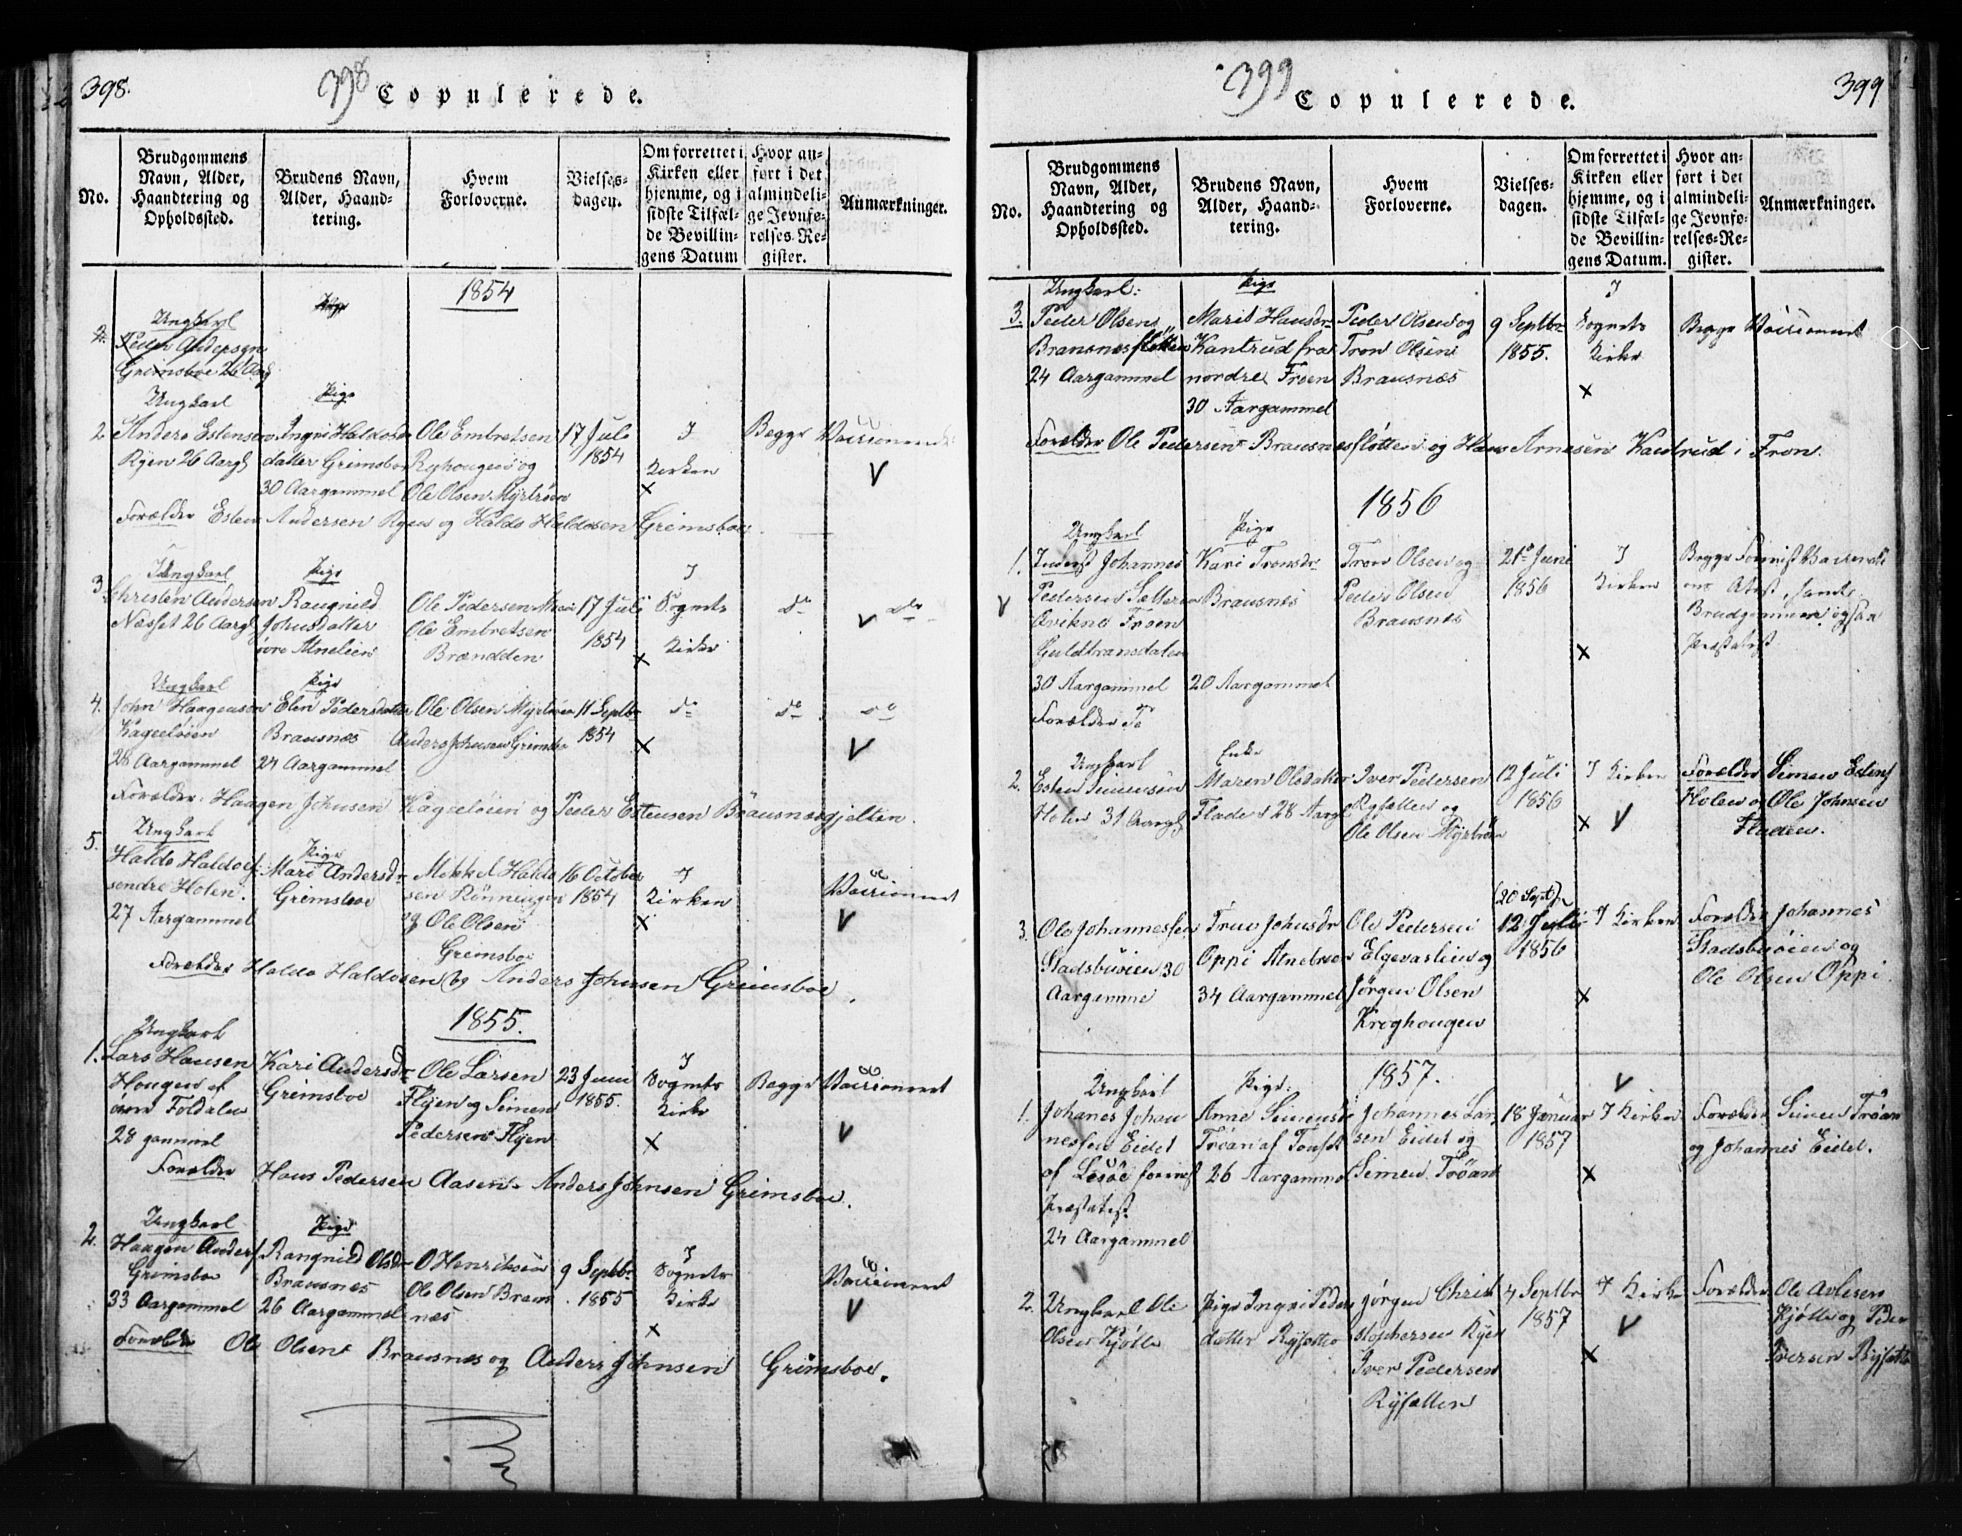 398.
398
Copulerede.
No.
Brudgommens
Navn, Alder,
Haandtering og
Opholdssted.
Brudens Navn,
Alder, Haand-
tering.
Hvem
Forloverne.
Vielses-
dagen.
Om forrettet i
Kirken eller
hjemme, og i
sidste Tilfæl-
de Bevillin-
gens Datum
Hvor an-
ført i det
almindeli-
ge Jevnfø-
relses-Re-
gister.
Anmærkninger.
1854
Ungkarl
Pige
2.
Peder Andersen
Grimsboe 26 Aarg
Ungkarl
Pige
2
Anders Estensen
Ryen 26 Aarg
Ingri Haldos
datter Grimsboe
30 Aargammel
Ole Embretsen
Ryhougen og
Ole Olsen Myrtrøen
17 Juli
1854
I
Kirken
Begge
Vaccineret
Forældre Esten Andersen Ryen og Haldo Haldosen Grimsboe
3.
Ungkarl
Christen Andersen
Næsset 26 Aarg
Pige
Rangnild
Johnsdatter
øvre Atneliien
Ole Pedersen Moen
Ole Embretsen
Brændden
17 Juli
1854
I
Sognets
Kirke
do
do
4.
Ungkarl
John Haagensen
Kageløien
28 Aargammel
Pige
Elen Pedersdatter
Brausnes
24 Aargammel
Ole Olsen Myrtrøen
Anders Johnsen Grimsbo
11 Septbr
1854
do
do
do
Forældre: Haagen Johnsen Kageløien og Peder Estensen Brausnesgjelten.
5.
Ungkarl
Haldo Haldos
søndre Holen
27 Aargammel
Pige
Mari Andersdr
Grimsboe
Mekkel Haldo
sen Rønningen
og Ole Olsen
Grimsboe
16 October
1854
I
Kirken
Vaccineret
Forældre Haldo Haldosen og Anders Johnsen Grimsboe.
1855.
1.
Ungkarl
Lars Hansen
Hougen af
øvre Foldalen
28 gammel
Kari Andersdr
Grimsboe
Ole Larsen
Flyen og Simen
Pedersen Flyen
23 Juni
1855.
I
Sognets
Kirke
Begge
Vaccineret
Forældre Hans Pedersen Aasen - Anders Johnsen Grimsboe.
2.
Ungkarl
Haagen Anders
Grimsboe
33 Aargammel
Pige
Rangnild Olsdr
Brausnes
26 Aargammel
O Henriksen
Ole Olsen Braus
nes
9 Septbr
1855
I
Sognets
Kirke
Vaccineret
Forældre Ole Olsen Brausnes og Anders Johnsen Grimsboe.
399
399
Copulerede.
No.
Brudgommens
Navn, Alder,
Haandtering og
Opholdssted.
Brudens Navn,
Alder, Haand-
tering.
Hvem
Forloverne.
Vielses-
dagen.
Om forrettet i
Kirken eller
hjemme, og i
sidste Tilfæl-
de Bevillin-
gens Datum.
Hvor an-
ført i det
almindeli-
ge Jevnfø-
relses-Re-
gister.
Anmærkninger.
3.
Ungkarl:
Peder Olsen
Brausnesfløtten
24 Aargammel
Pige
Marit Hansdr
Kantrud fra
nordre Froen
30 Aargammel
Peder Olsen og
Tron Olsen
Brausnes
9 Septbr
1855.
I
Sognets
Kirke
Begge
Vaccineret
Forældre Ole Pedersen Brausnesfløtten og Hans Arnesen Kantrud i Fron.
1856
1.
Ungkarl
Inderst Johannes
Pedersen
Qvikne Froen
Guldbransdalen
30 Aargammel
Pige
Kari Tronsdr
Brausnes
20 Aargammel
Tron Olsen og
Peder Olsen
Brausnes
21de Juni
1856
I
Kirken
Begge
Attest, samt
Brudgommen ogsaa
Præstatest
Forældre
2.
Ungkarl
Esten Simensen
Holen 31 Aarg
Enke
Maren Olsdatter
Fladen 28 Aarg
Iver Pedersen
Ryfatten og
Ole Olsen Myrtrøen
12 Juli
1856
I Kirken
Forældre Simen Estens
Holen og Ole Johnsen
Fladen.
3.
Ole Johannessen
Stadsbuøien 30
Aargamme
Oppi Atnebroen
34 Aargammel
Ole Pedersen
Elgevaslien og
Jørgen Olsen
Kroghougen
(20 Sept)
12 Juli
1856
I Kirken
Forældre Johannes
Stadsbuøien og
Ole Olsen Oppi
1857.
1.
Ungkarl
Johanes Johan
nessen Eidet
af Lesøe
Præstatest
24 Aargammel
Pige:
Anne Simensdr
Trøan af Tønset
26 Aargammel
Johannes Lar
sen Eidet og
Simen Trøan
18 Januar
1857
I Kirken
Forældre Simen Trøan
og Johannes Eidet.
2.
Ungkarl Ole
Olsen Kjølle
Pige Ingri Peders
datter Ryfatten
Jørgen Christ
stophersen Ryen
Iver Pedersen
Ryfatten
4 Septbr
1857
I Kirke
Forældre Ole
Kjølle og Peder
Iversen Ryfatten